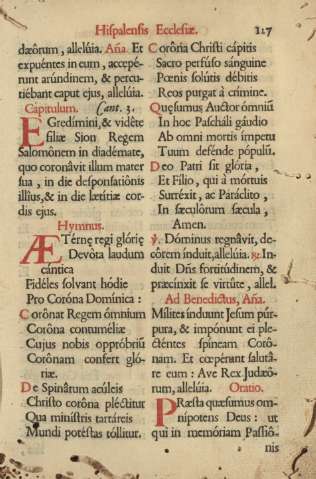 Hispalensis Ecclesiæ. 127
dæórum, allelúia. Aña. Et
expuéntes in eum, accepé-
runt arúndinem, & percu-
tiébant caput ejus, allelúia.
Capitulum. Cant. 3.
EGredímini, & vidéte
filiæ Sion Regem
Salomónem in diadémate,
quo coronávit illum mater
sua, in die desponsatiónis
illius, & in die lætítiæ cor-
dis ejus.
Hymnus.
ÆTérnę regi glórię
Devóta laudum
cántica
Fidéles solvant hódie
Pro Coróna Domínica:
Corónat Regem ómnium
Coróna contuméliæ
Cujus nobis oppróbriũ
Corónam confert gló-
riæ.
De Spinárum acúleis
Christo coróna pléctitur
Qua minístris tartáreis
Mundi potéstas tóllitur.
Coróna Christi cápitis
Sacro perfúso sánguine
Pœnis solútis débitis
Reos purgat à crímine.
Quęsumus Auctor ómniũ
In hoc Pascháli gáudio
Ab omni mortis ímpetu
Tuum defénde pópulũ.
Deo Patri sit glória,
Et Fílio, qui à mórtuis
Surréxit, ac Paráclito,
In sæculórum sæcula,
Amen.
℣. Dóminus regnávit, de-
córem índuit, allelúia. ℟. In-
duit Dñs fortitúdinem, &
præcínxit se virtúte, allel.
Ad Benedictus, Aña.
Mílites induunt Jesum púr-
pura, & impónunt ei ple-
cténtes spíneam Coró-
nam. Et cœpérunt salutá-
re eum: Ave Rex Judæó-
rum, allelúia. Oratio.
PRæsta quæsumus om-
nípotens Deus: ut
qui in memóriam Passió-
nis